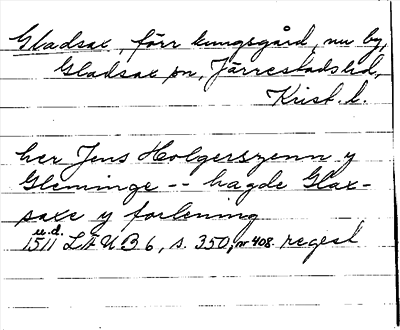 Gladsax, förr kungsgård, nu by,
Gladsax sn, Järrestads hd,
Krist. l.
her Jens Holgerszenn y
Gleminge -- hagde Glax-
saxe y forlening
u.d.
1511 LÄUB 6, s. 350, nr 408. regest